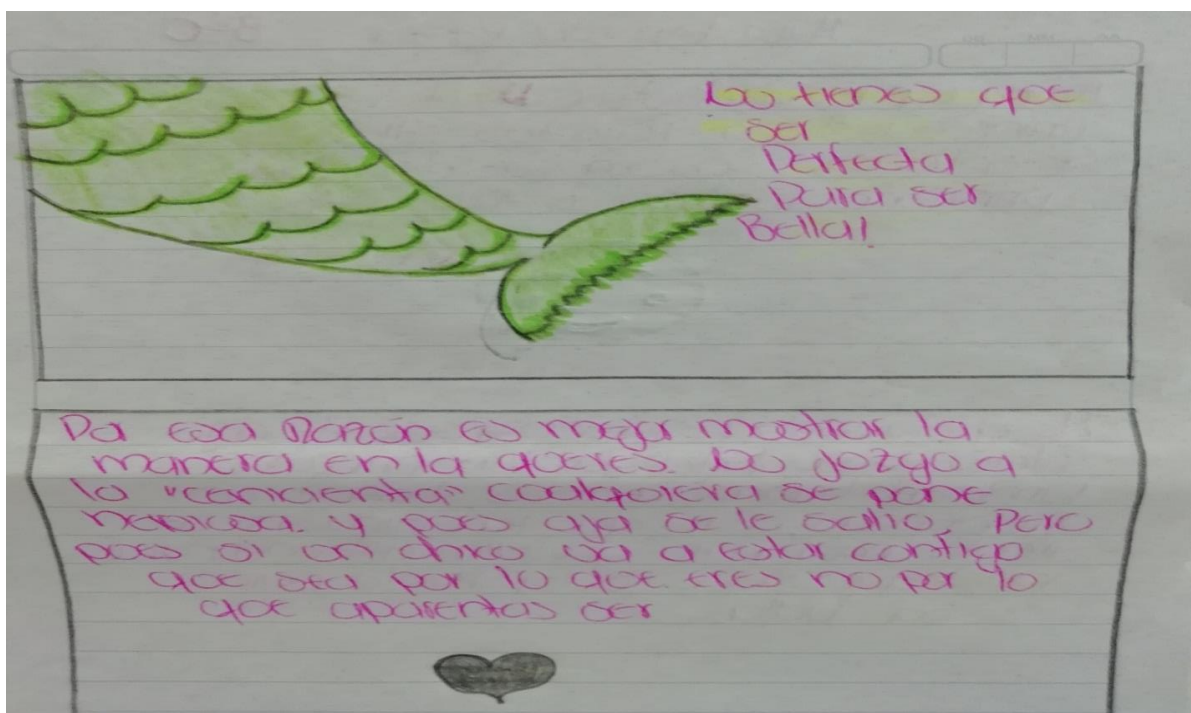 No tienes que
ser
Perfecta
Para ser
Bella!
Por esa Razón es mejor mostrar la
manera en la que eres. No jozgo a
la "cenicienta" coalquiera se pone
nerviosa. y pues aja se le salio, Pero
pues si un chico va a estar contigo
que sea por lo que eres no por lo
que aparentas ser